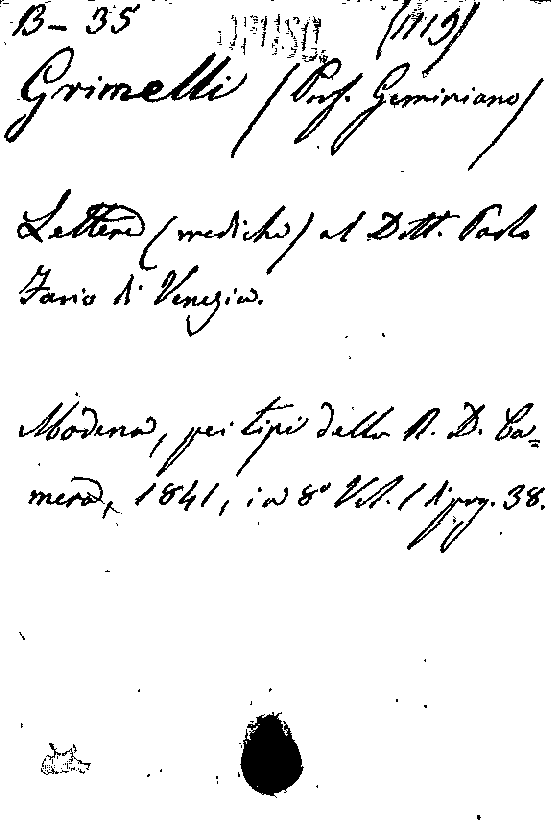 B- 35 OPUSC. (1119)
Grimelli (Prof. Geminiano)
Lettere (mediche) al Dott. Paolo
Fario di Venezia.
Modena, pei tipi della R. D. Ca=
mera, 1841, in 8° Vol. 1 di pag. 38.